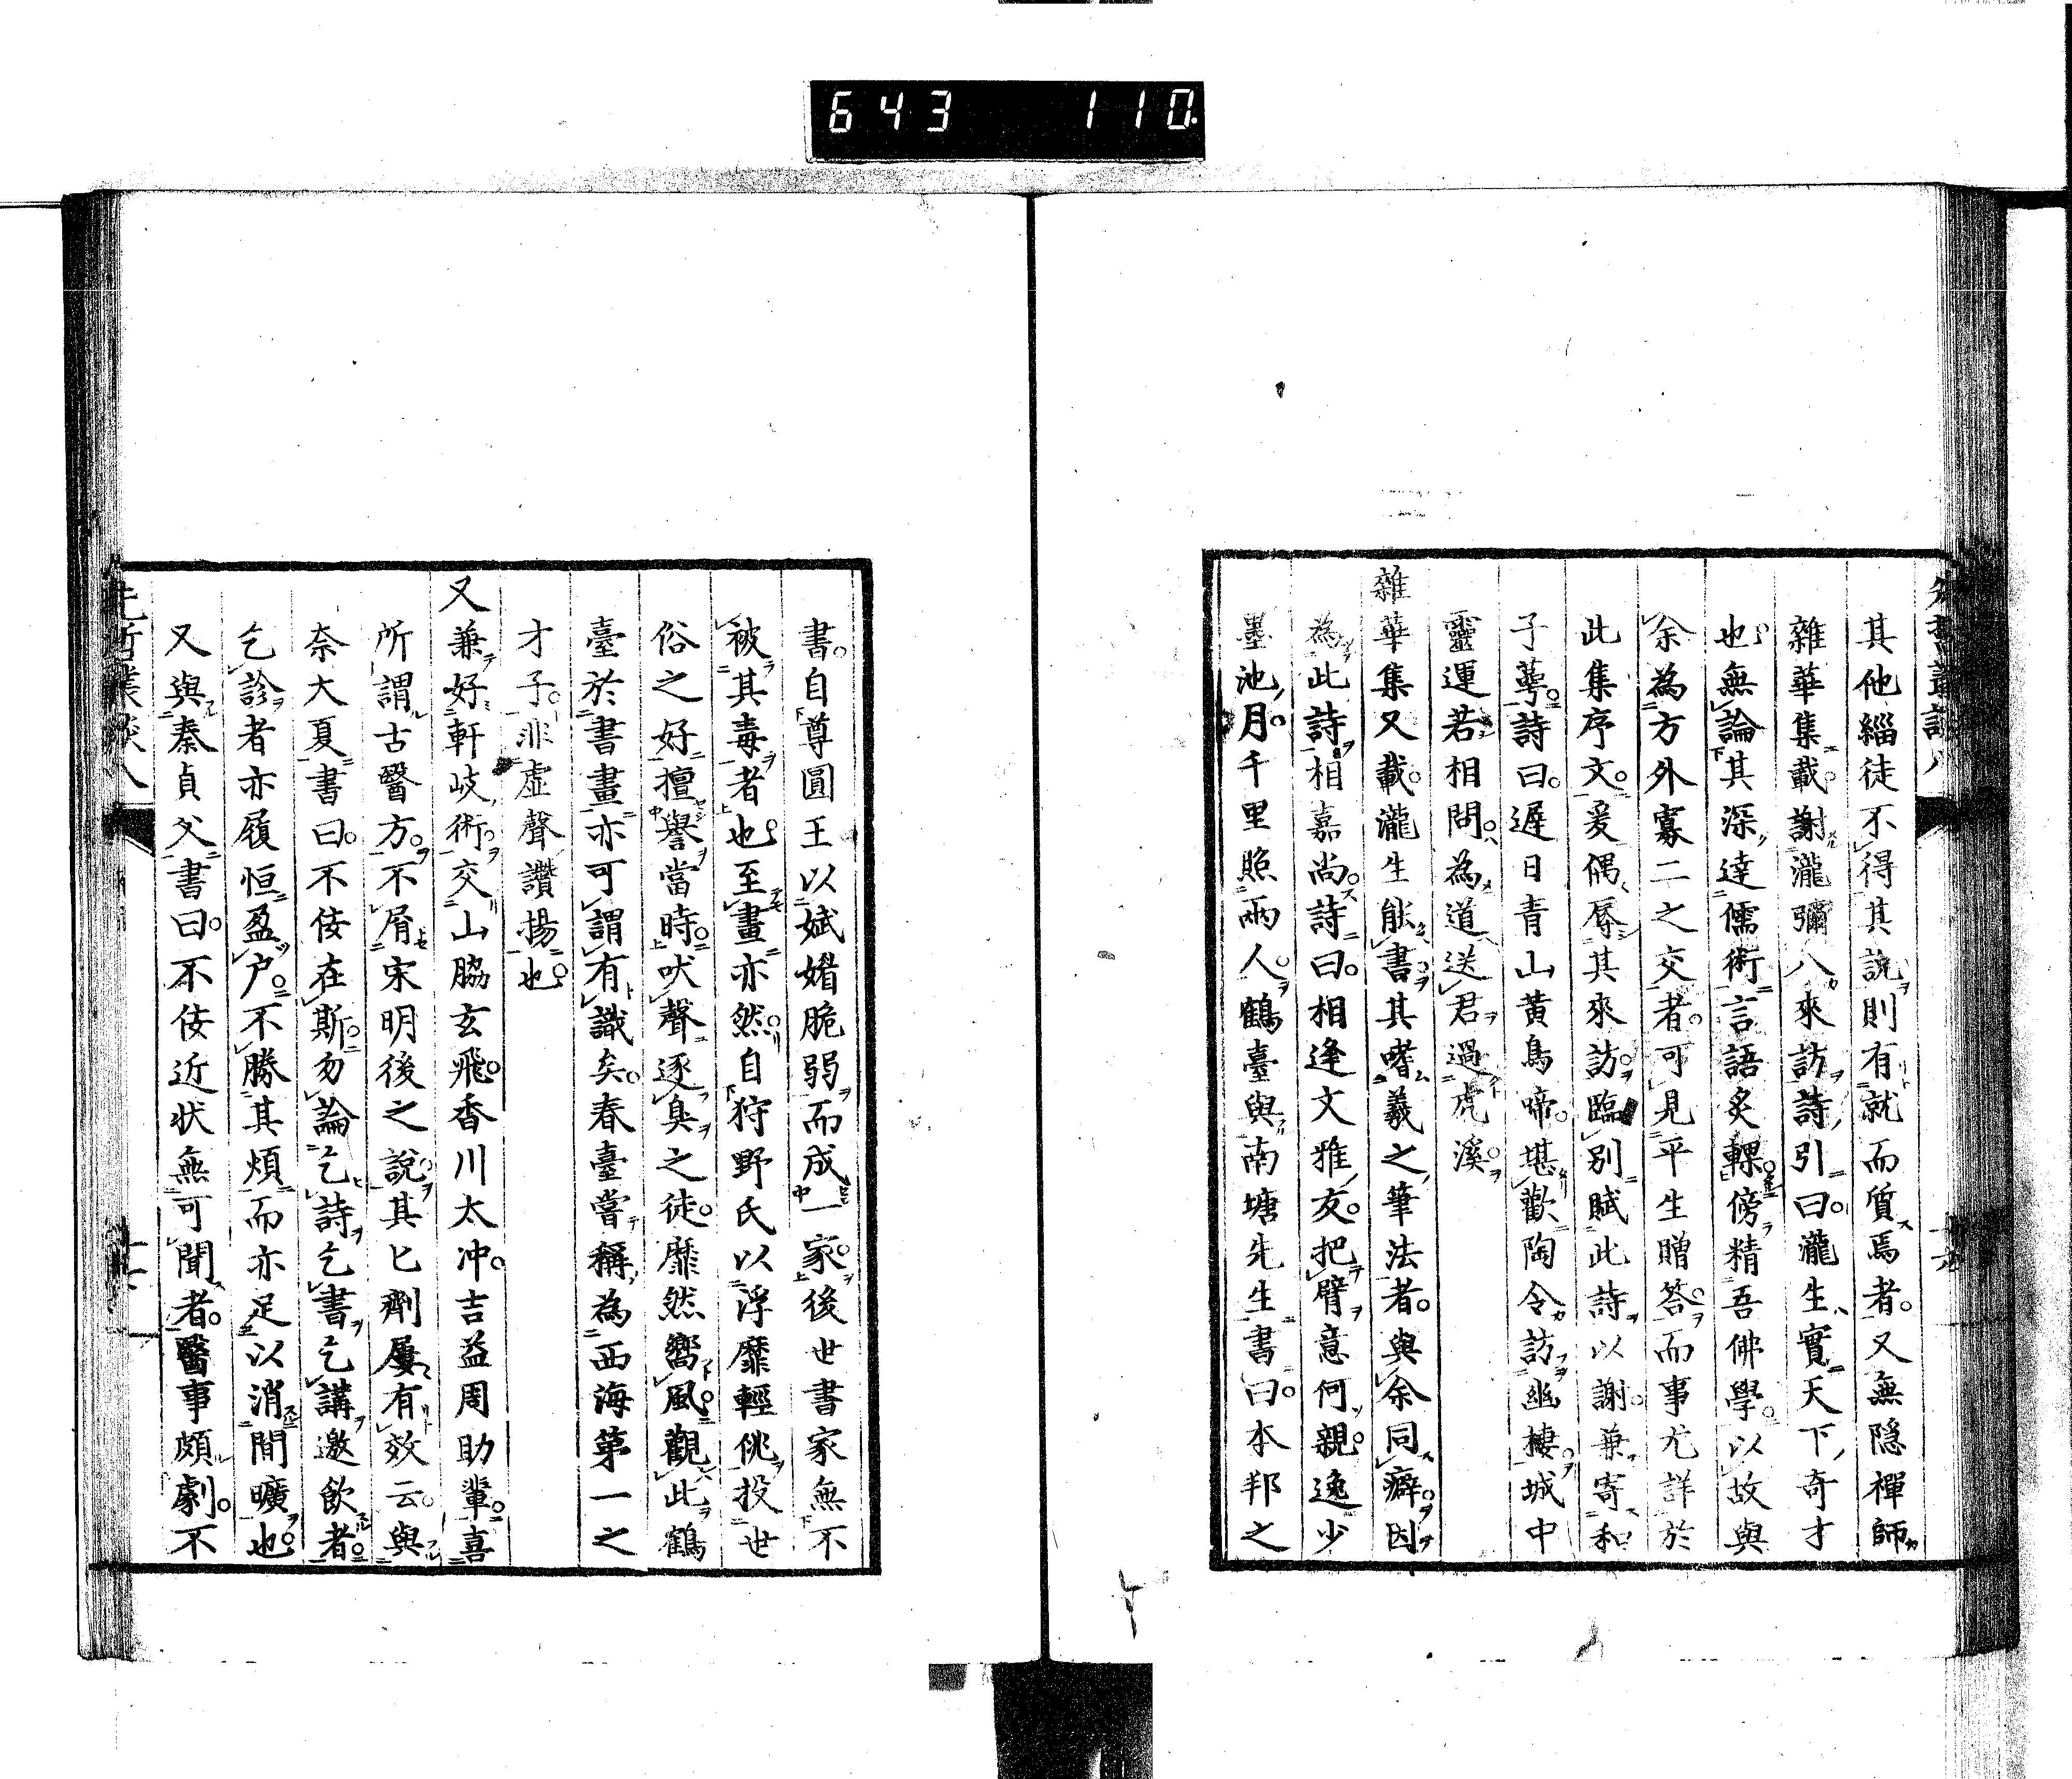 643 110
其他緇徒不得其說則有就而質焉者又無隠禪師
雜華集載謝瀧彌八來訪詩引曰瀧生實天下奇才
也無論其深達儒術言語炙輠傍精吾佛學以故與
余為方外寡二之交者可見平生贈答而事尤詳於
此集序文爰偶辱其來訪臨別賦此詩以謝兼寄和
子蕚詩曰遲日青山黃鳥啼堪歡陶令訪幽棲城中
靈運若相問為道送君過虎溪
雜華集又載瀧生能書其嗜羲之筆法者與余同癖因
為此詩相嘉尚詩曰相逢文雅友把臂意何親逸少
墨池月千里照兩人鶴臺與南塘先生書曰本邦之
書自尊圓王以娬媚脆弱而成一家後世書家無不
被其毒者也至畫亦然自狩野氏以浮靡輕佻投世
俗之好擅譽當時吠聲逐臭之徒靡然嚮風觀此鶴
臺於書畫亦可謂有識矣春臺嘗稱為西海第一之
才子非虛聲讚揚也
又兼好軒岐術交山脇玄飛香川太冲吉益周助輩喜
所謂古醫方不屑宋明後之說其匕劑屢有效云與
奈大夏書曰不佞在斯勿論乞詩乞書乞講邀飲者
乞診者亦履恒盈户不勝其煩而亦足以消間曠也
又與秦貞父書曰不佞近状無可聞者醫事頗劇不